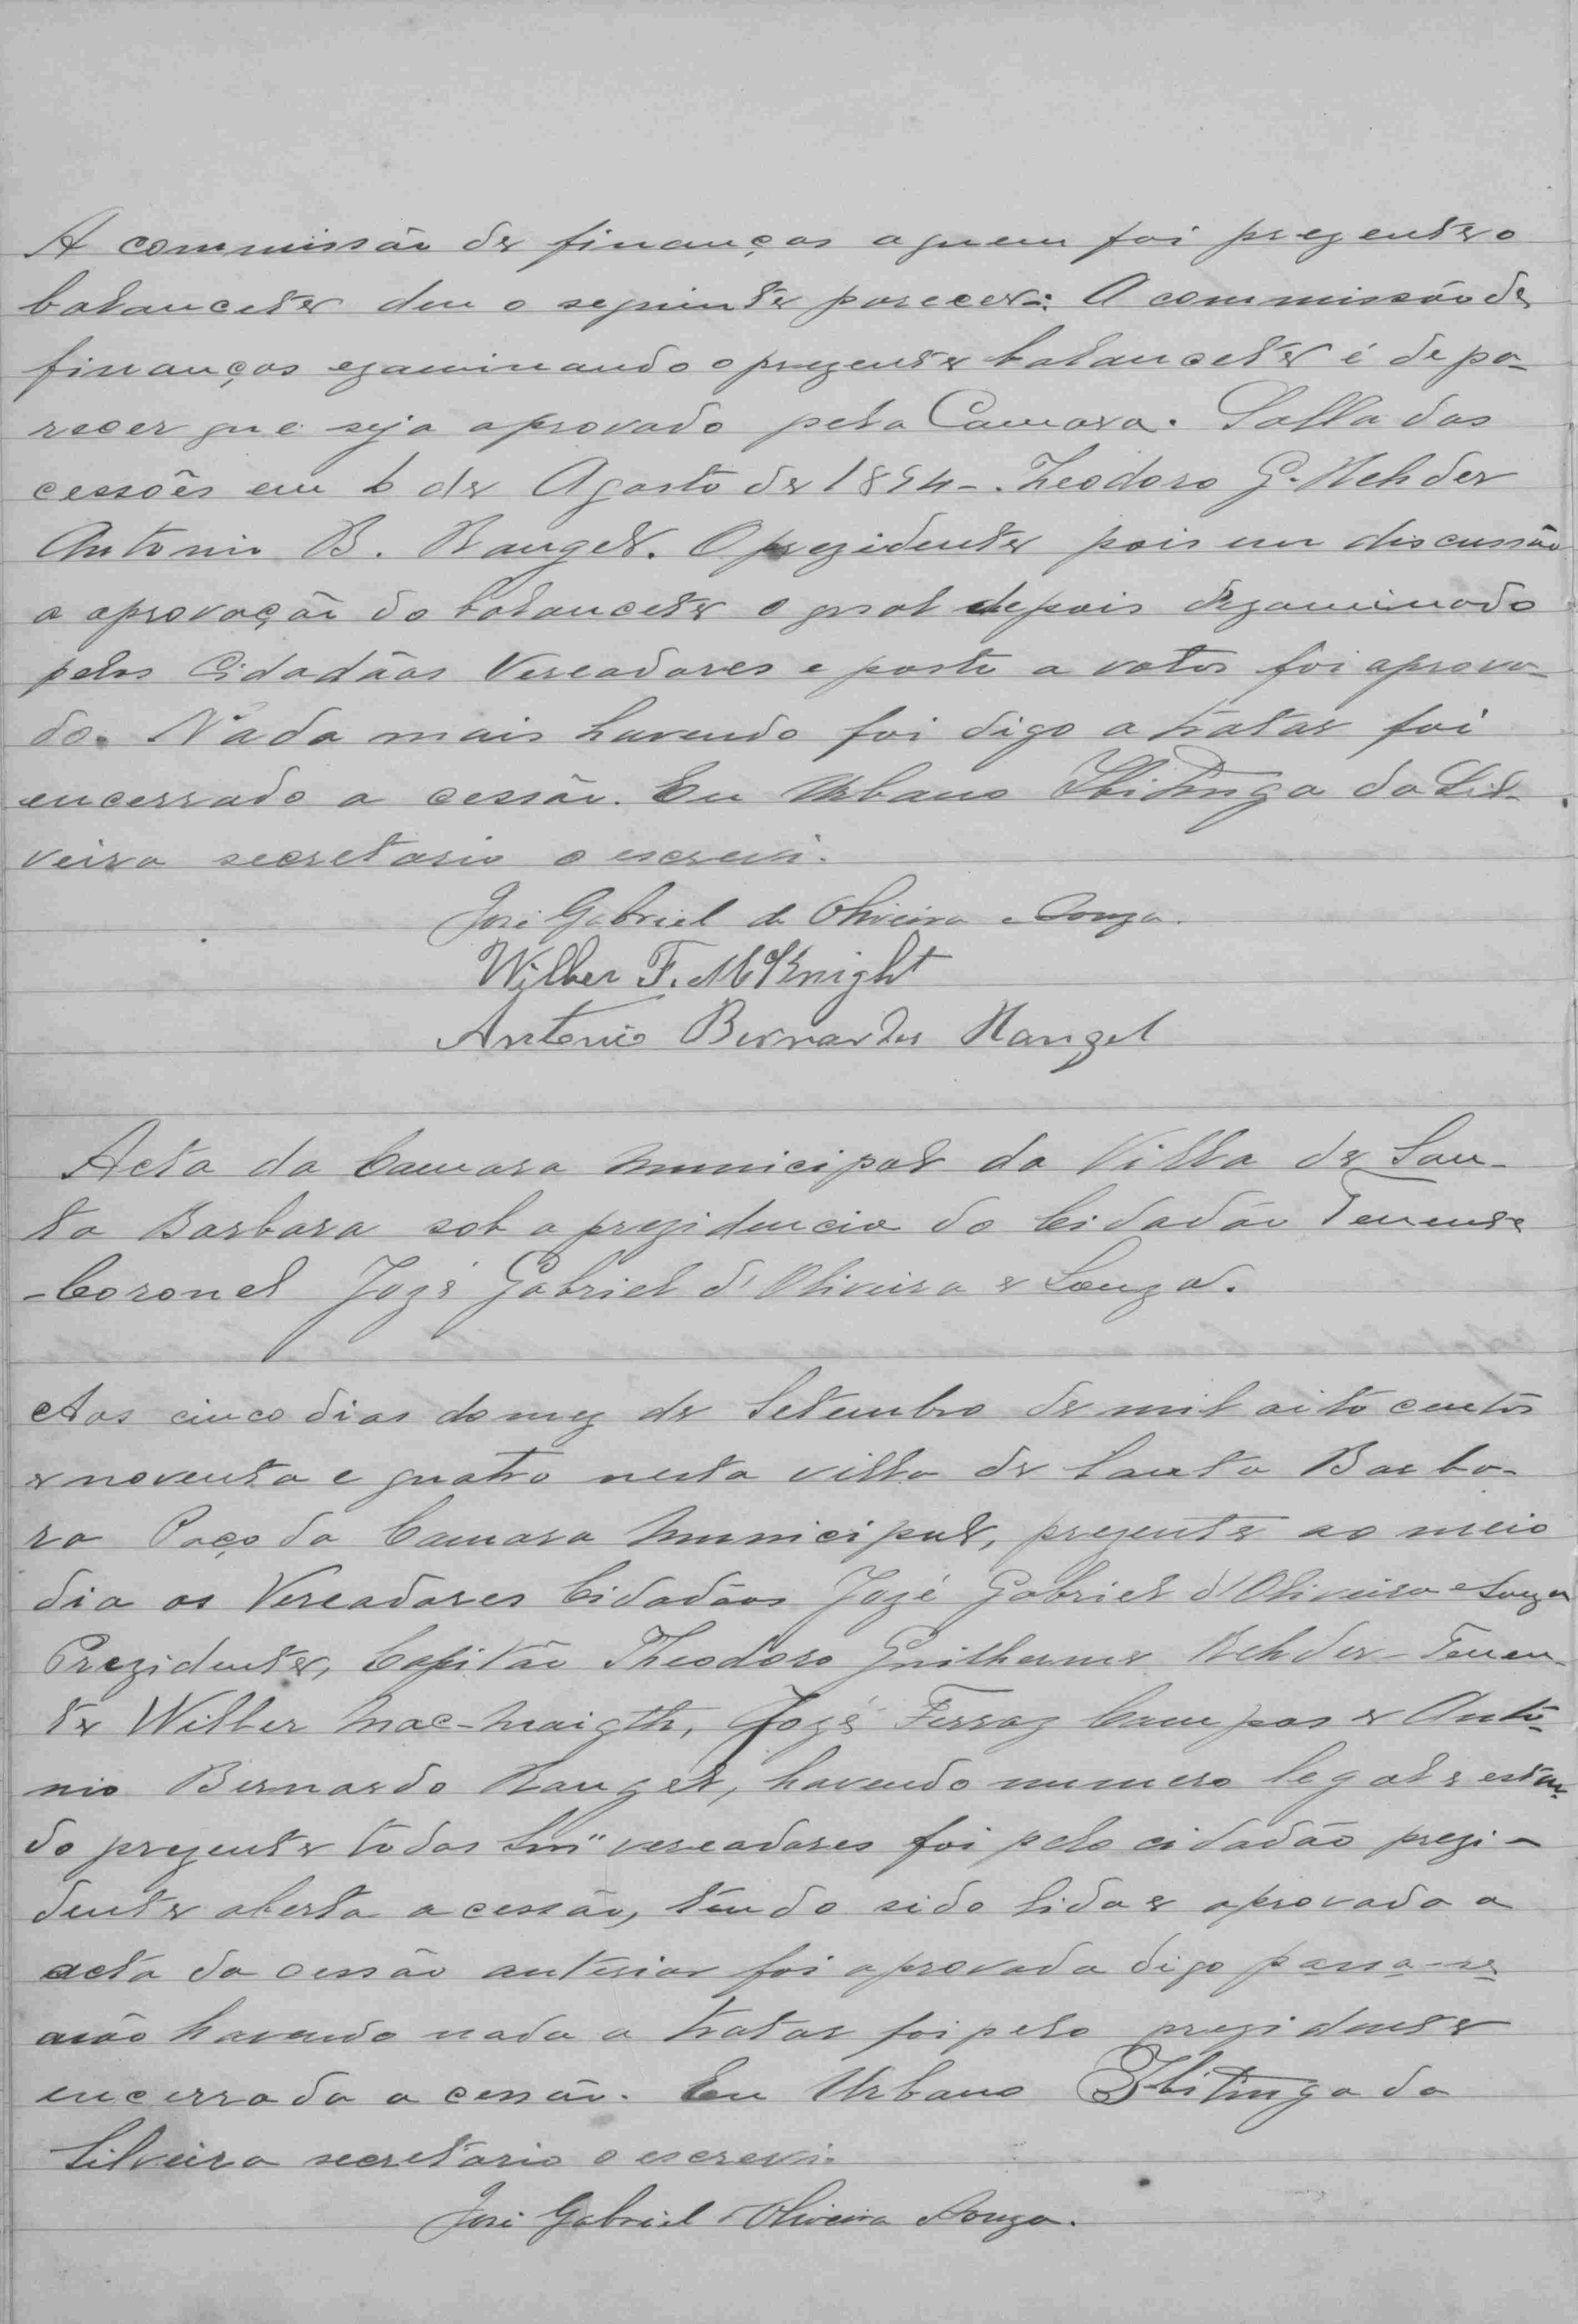 A commissão de finanças a quem foi prezente o
balancete deu o seguinte parecer: A commissão de
finanças ezaminando o prezente balancete é de pa-
recer que seja aprovado pela Camara. Salla das
cessões em 6 de Agosto de 1894-. Theodoro G. Rehder
Antonio B. Rangel. O prezidente pois em discussão
a aprovação do balancete o qual depois dezaminado
pelos Cidadãos Vereadores e posto a votos foi aprova-
do. Nada mais havendo foi digo a tratar foi
encerrado a cessão. Eu Urbano Ibitinga da Sil-
veira secretario o escrevi.
José Gabriel de Oliveira e Souza.
Wilber F. McKnight
Antonio Bernardes Rangel
Acta da Camara Municipal da Villa de San-
ta Barbara sob a prezidencia do Cidadão Tenente
-Coronel Jozé Gabriel d'Oliveira e Souza.
Aos cinco dias do mez de Setembro de mil oito centos
e noventa e quatro nesta villa de Santa Barba-
ra Paço da Camara Municipal, prezente ao meio
dia os Vereadores Cidadãos Jozé Gabriel d'Oliveira e Souza
Prezidente, Capitão Theodoro Guilherme Rehder - Tenen-
te Wilber Mac-Naigth, Jozé Ferraz Campos e Anto-
nio Bernardo Rangel, havendo numero legal e estan-
do prezente todos Snr" vereadores foi pelo cidadão prezi-
dente aberta a cessão, tendo sido lida e aprovada a
acta da cessão anterior foi aprovada digo passa-se
não havendo nada a tratar foi pelo prezidente
encerrada a cessão. Eu Urbano Ibitinga da
Silveira secretario o escrevi.
José Gabriel Oliveira Souza.